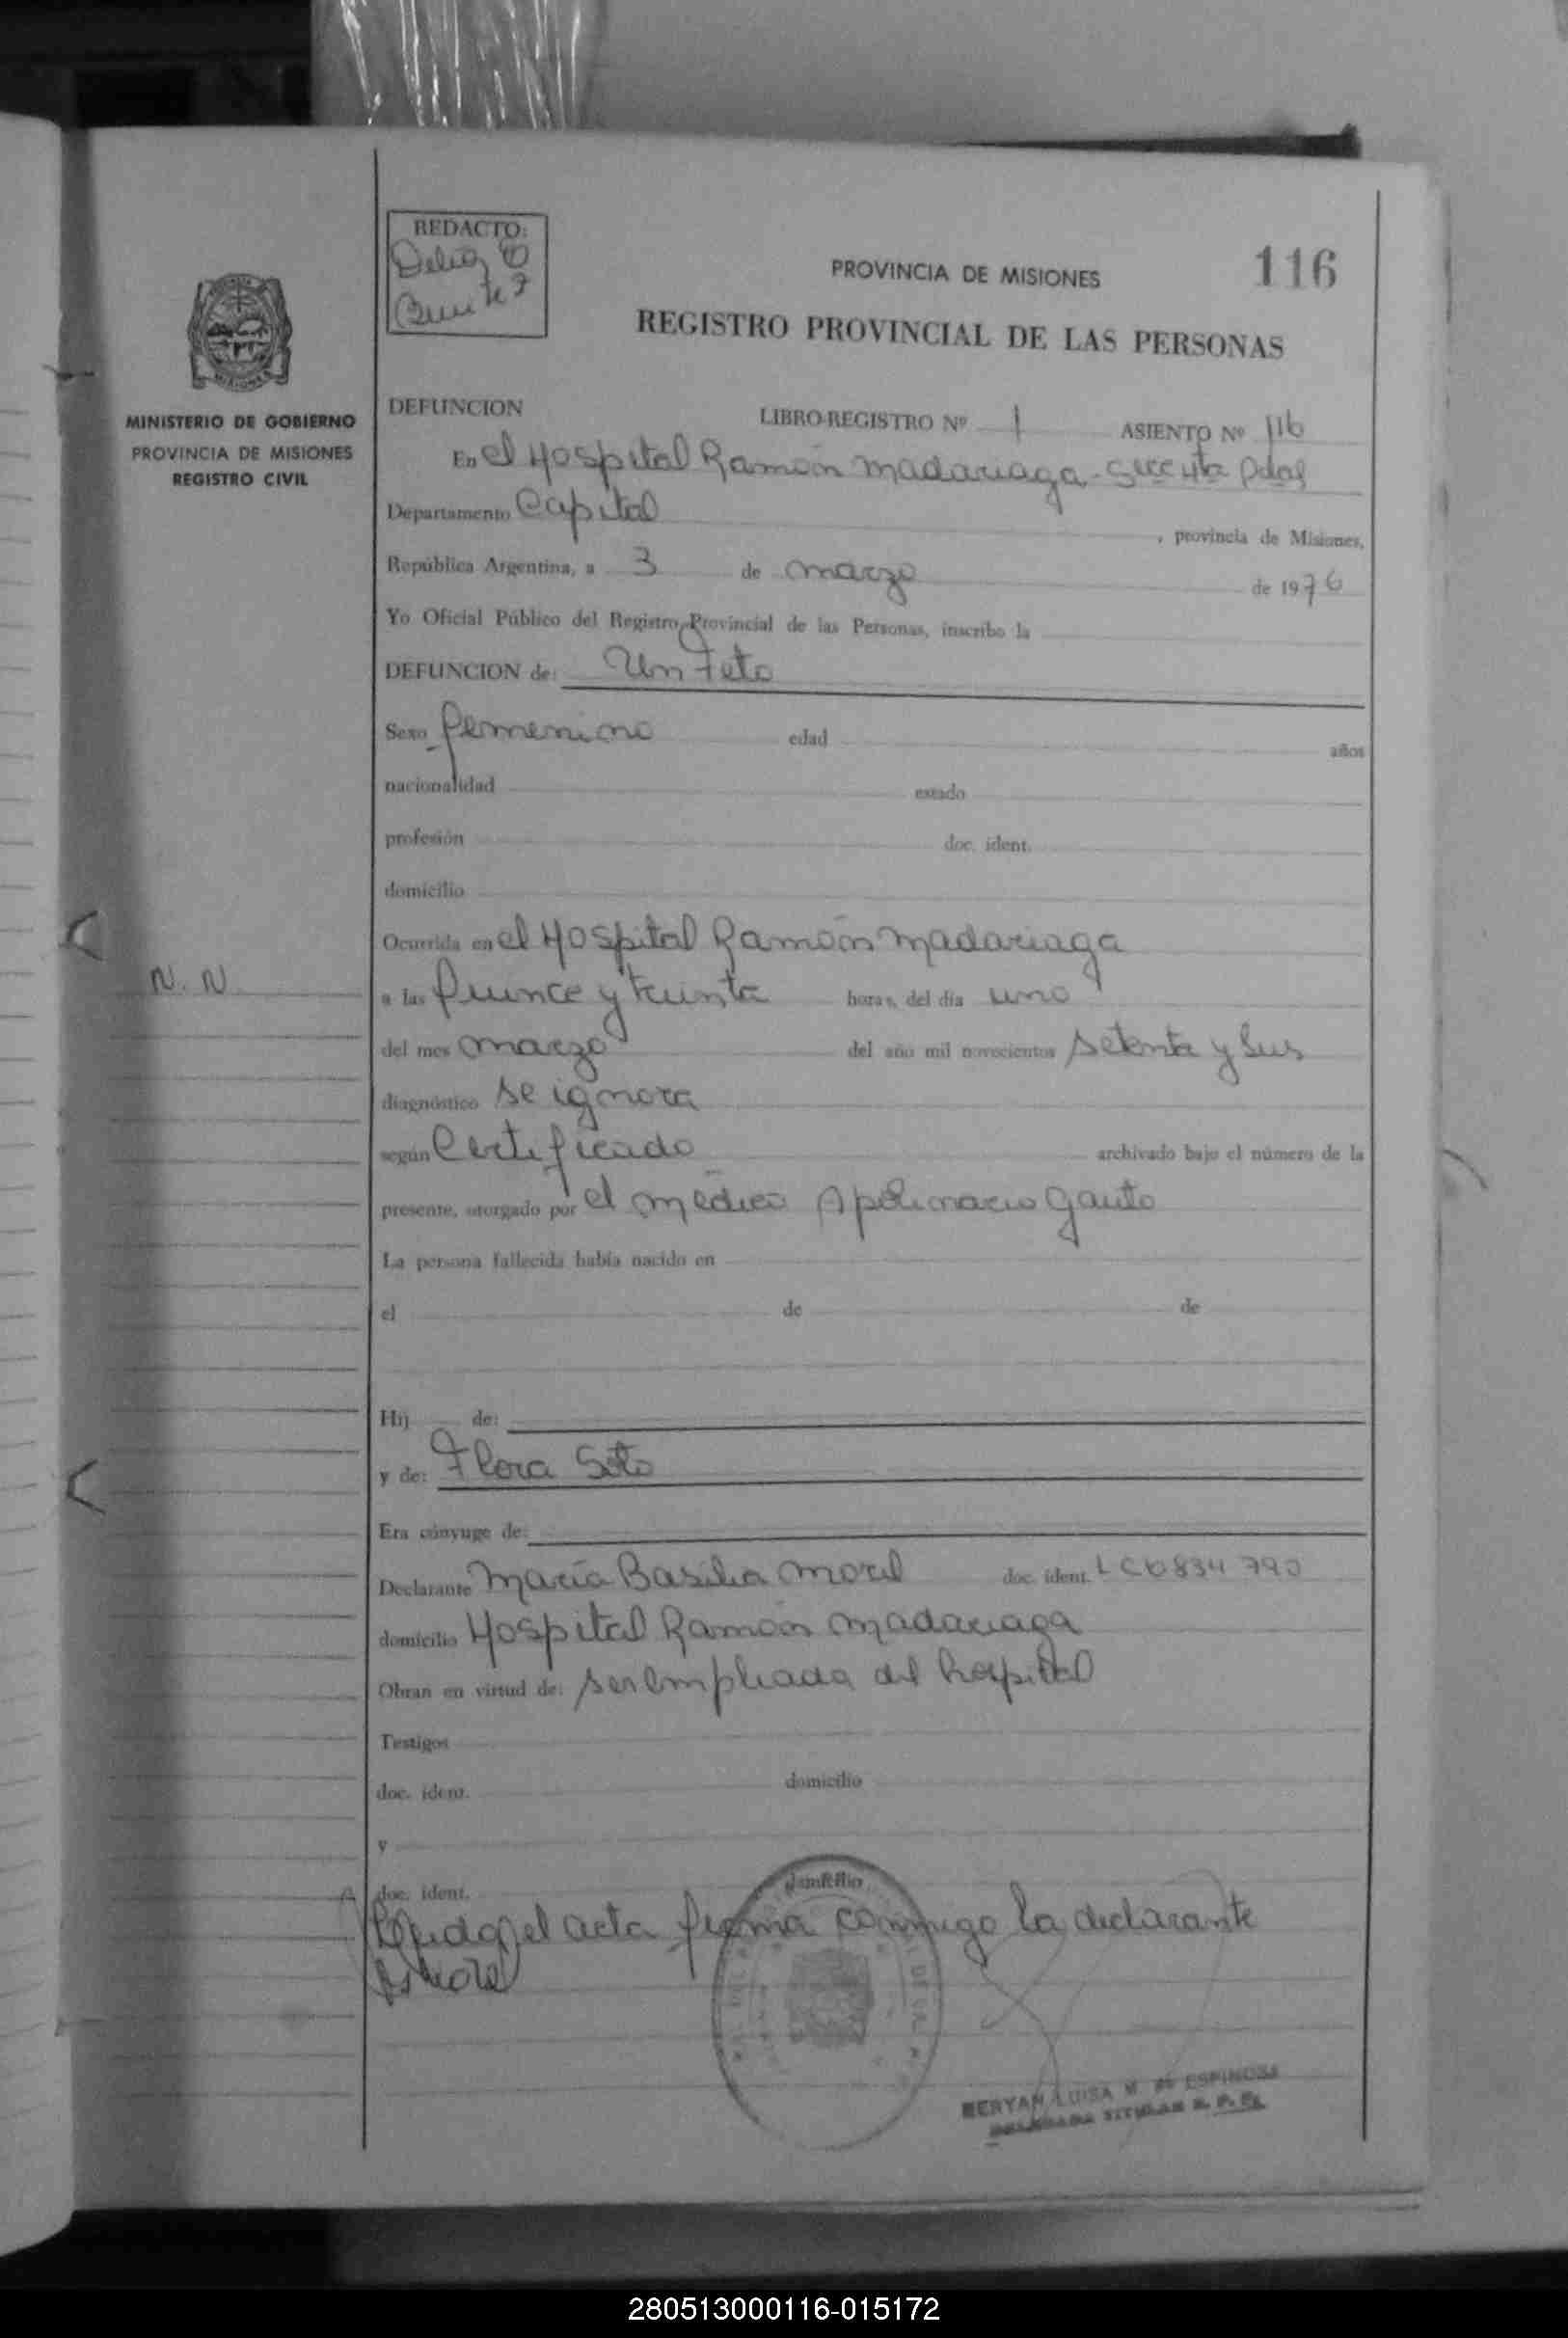 REDACTO:
Delia
PROVINCIA DE MISIONES
116
REGISTRO PROVINCIAL DE LAS PERSONAS
MINISTERIO DE GOBIERNO
PROVINCIA DE MISIONES
REGISTRO CIVIL
DEFUNCION LIBRO-REGISTRO Nº 1 ASIENTO Nº 116
En el Hospital Ramón Madariaga - Secc 4ta Pdas
Departamento Capital
, provincia de Misiones,
República Argentina, a 3 de marzo de 1976
Yo Oficial Público del Registro Provincial de las Personas, inscribo la
DEFUNCION de: Un Feto
Sexo femenino edad años
nacionalidad estado
profesión doc. ident.
domicilio
Ocurrida en el Hospital Ramón Madariaga
N. N
a las quince y treinta horas, del día uno
del mes marzo del año mil novecientos setenta y seis
diagnóstico se ignora
según Certificado archivado bajo el número de la
presente, otorgado por el médico Apolinario Gauto
La persona fallecida había nacido en
el de de
Hij de:
y de: Flora Soto
Era cónyuge de:
Declarante María Basilia Morel doc. ident. LC 6834790
domicilio Hospital Ramón Madariaga
Obran en virtud de: ser empleada del hospital
Testigos
doc. ident. domicilio
y
doc. ident. domicilio
Leída el acta firma conmigo la declarante
Morel
MERYAN LUISA M. de ESPINOSA
DELEGADA TITULAR R. P. P.
280513000116-015172